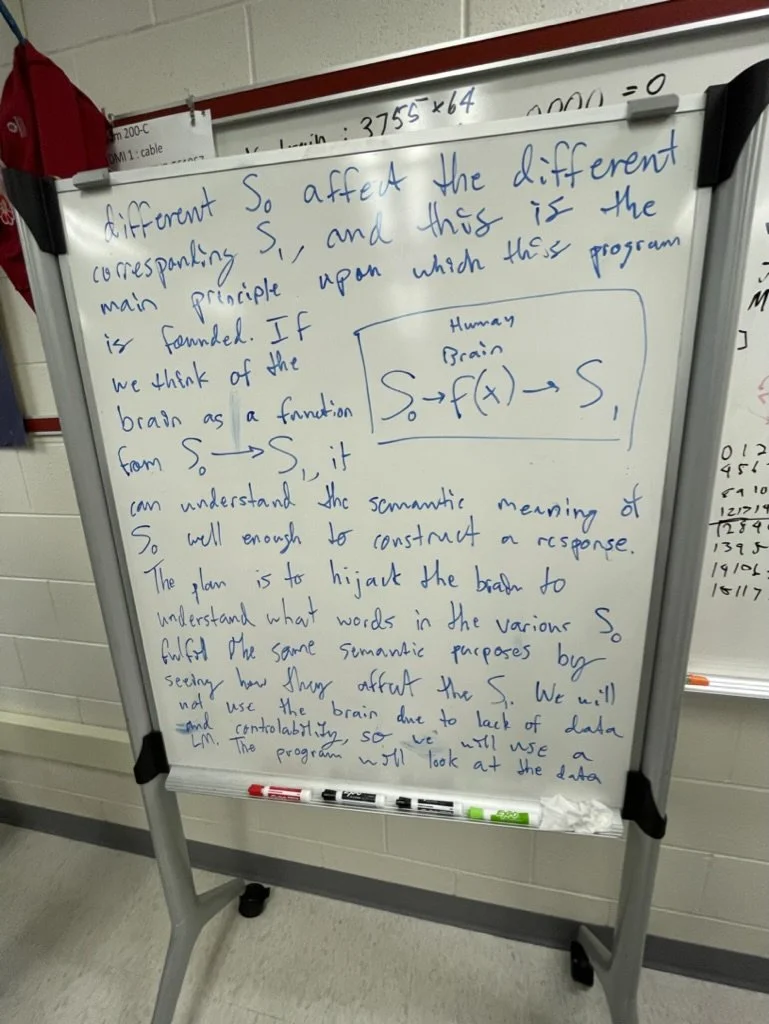 3755 × 64
= 0
m 200-C
DMI 1 : cable
different S₀ affect the different
corresponding S₁, and this is the
main principle upon which this program
is founded. If
we think of the
brain as a function
from S₀ → S₁, it
Human
Brain
S₀ → f(x) → S₁
can understand the semantic meaning of
S₀ well enough to construct a response.
The plan is to hijack the brain to
understand what words in the various S₀
fulfil the same semantic purposes by
seeing how they affect the S₁. We will
not use the brain due to lack of data
and controlability, so we will use a
LM. The program will look at the data
M
]
0 1 2
4 5 6